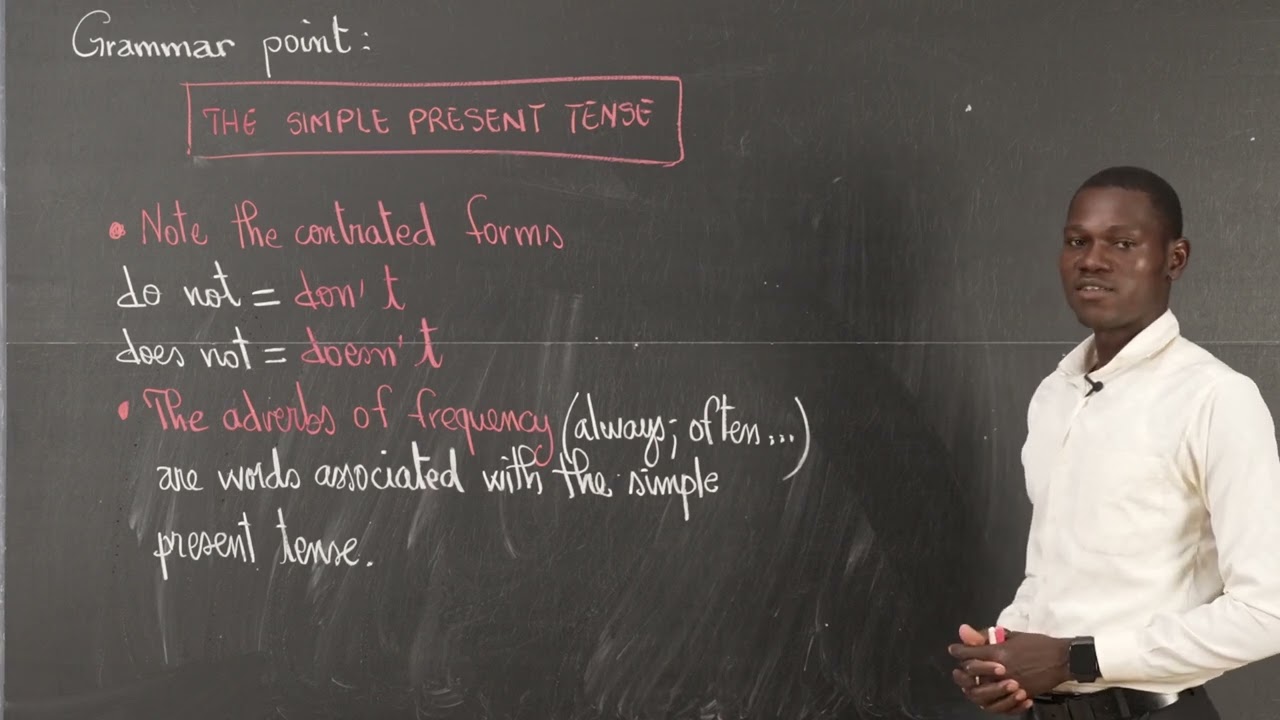 Grammar point:
THE SIMPLE PRESENT TENSE
• Note the contrated forms
do not = don't
does not = doesn't
• The adverbs of frequency (always; often...)
are words associated with the simple
present tense.